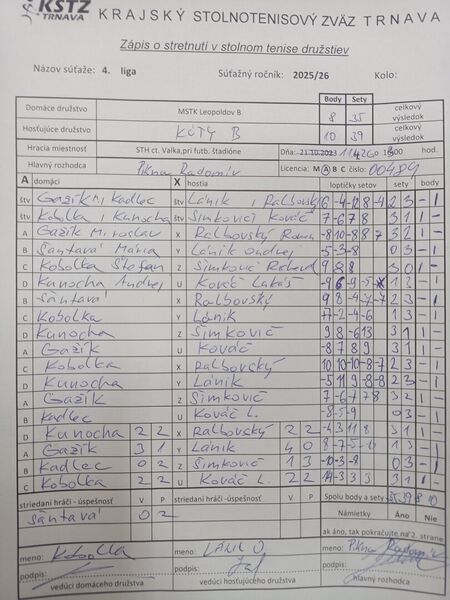 KSTZ TRNAVA KRAJSKÝ STOLNOTENISOVÝ ZVÄZ TRNAVA
Zápis o stretnutí v stolnom tenise družstiev
Názov súťaže: 4. liga Súťažný ročník: 2025/26 Kolo:
Body Sety
Domáce družstvo MSTK Leopoldov B 8 35 celkový výsledok
Hosťujúce družstvo KÚTY B 10 39 celkový výsledok
Hracia miestnosť STH ct. Valka,pri futb. štadióne Dňa: hod.
Hlavný rozhodca Pikna Radomír Licencia: M A B C číslo: 00484
A domáci X hostia loptičky setov sety body
štv Gazík M, Kadlec štv Lánik, Ralbovský 2 3 - 1
štv Kobolka, Kunocha štv Šimkovič, Kováč 7 -6 7 8 3 1 1 -
A Gazík Miroslav X Ralbovský -8 10 -8 8 7 3 2 1 -
B Šántavá Mária Y Lánik Ondrej -5 -3 -8 0 3 - 1
C Kobolka Štefan Z Šimkovič Richard 9 8 8 3 0 1 -
D Kunocha Andrej U Kováč Lukáš 1 3 - 1
B Šántavá X Ralbovský 9 8 -4 -7 -7 2 3 - 1
C Kobolka Y Lánik -2 -4 -6 1 3 - 1
D Kunocha Z Šimkovič 9 8 -6 13 3 1 1 -
A Gazík U Kováč -8 7 8 9 3 1 1 -
C Kobolka X Ralbovský 10 10 -10 -8 -7 2 3 - 1
D Kunocha Y Lánik -5 11 9 -8 -8 2 3 - 1
A Gazík Z Šimkovič 7 -6 -7 7 8 3 2 1 -
B Kadlec U Kováč L. -8 -5 -9 0 3 - 1
D Kunocha 2 2 X Ralbovský 2 2 -4 3 8 8 3 1 1 -
A Gazík 3 1 Y Lánik 4 0 8 -7 -5 -6 1 3 - 1
B Kadlec 0 2 Z Šimkovič 1 3 -10 -3 -8 0 3 - 1
C Kobolka 2 2 U Kováč L. 2 2 3 1 1 -
striedaní hráči - úspešnosť V P striedaní hráči - úspešnosť V P Spolu body a sety 35 39 8 10
Šántavá 0 2 Námietky Áno Nie
ak áno, tak pokračujte na 2. strane
meno: Kobolka meno: LÁNIK O. meno: Pikna Radomír
podpis: podpis: podpis:
vedúci domáceho družstva vedúci hosťujúceho družstva hlavný rozhodca